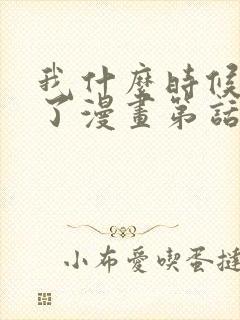 我什麼時候
了漫畫第話
小布愛喫蛋撻